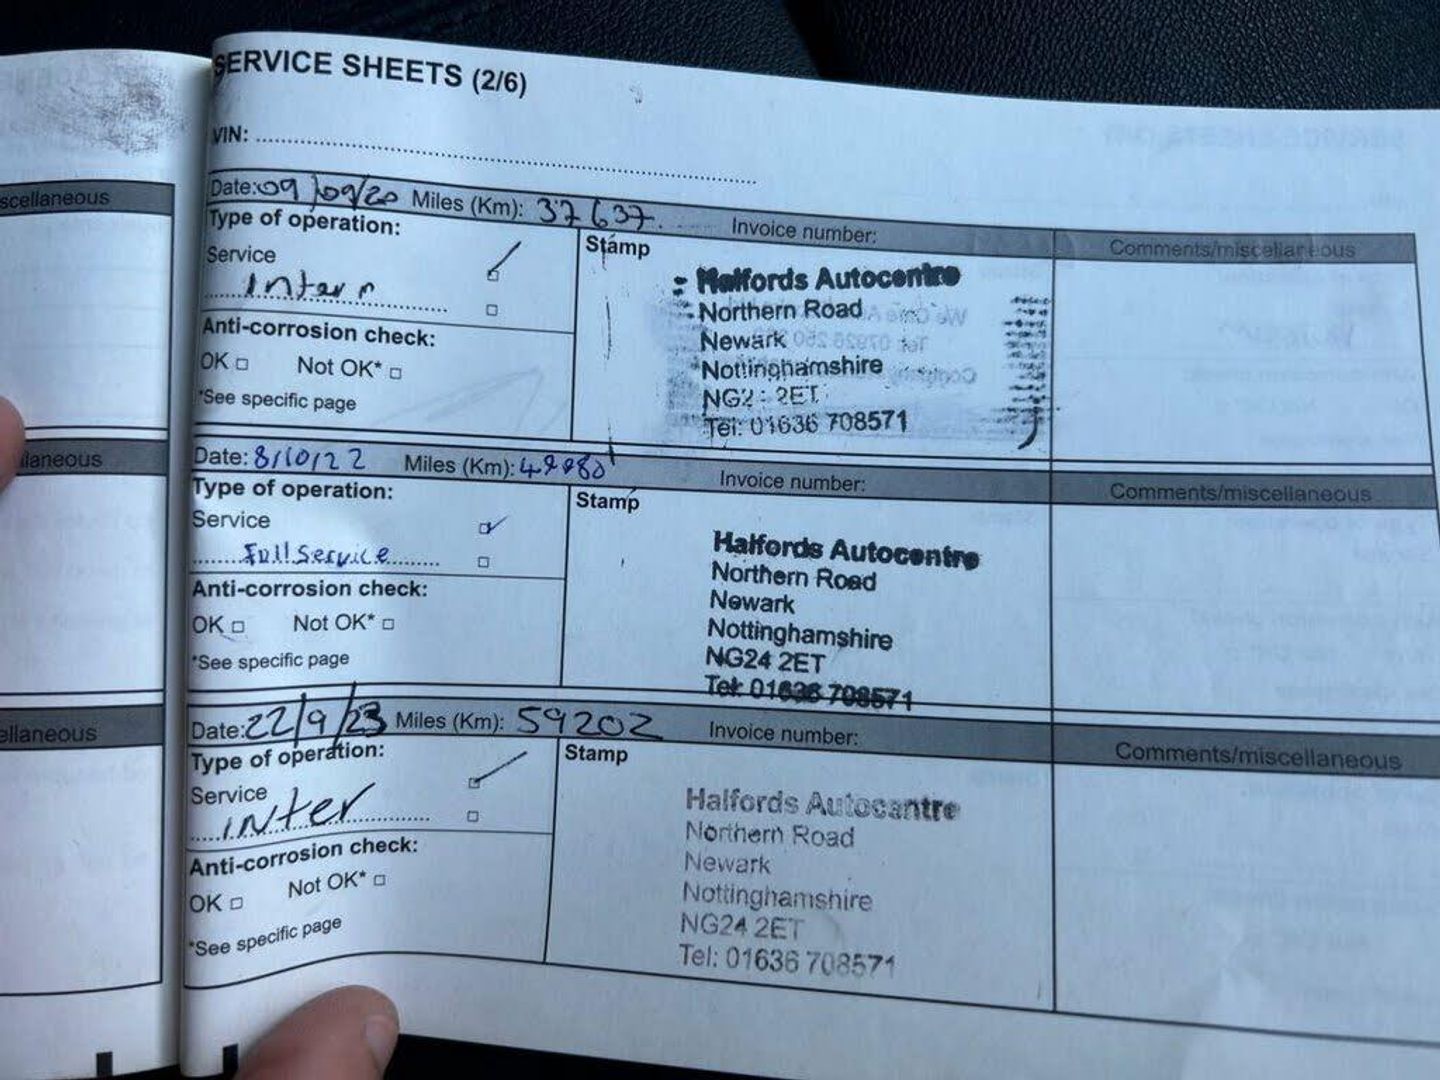 SERVICE SHEETS (2/6)
VIN:
scellaneous
Date: 09/09/20 Miles (Km): 37637. Invoice number: Comments/miscellaneous
Type of operation:
Service
Inter
Anti-corrosion check:
OK Not OK*
*See specific page
Stamp
Halfords Autocentre
Northern Road
Newark
Nottinghamshire
2ET
Tel: 01636 708571
laneous
Date: 8/10/22 Miles (Km): Invoice number: Comments/miscellaneous
Type of operation:
Service
Full Service
Anti-corrosion check:
OK Not OK*
*See specific page
Stamp
Halfords Autocentre
Northern Road
Newark
Nottinghamshire
NG24 2ET
Tel: 01636 708571
ellaneous
Date: 22/9/23 Miles (Km): 59202 Invoice number: Comments/miscellaneous
Type of operation:
Service
inter
Anti-corrosion check:
OK Not OK*
*See specific page
Stamp
Halfords Autocentre
Northern Road
Newark
Nottinghamshire
NG24 2ET
Tel: 01636 708571